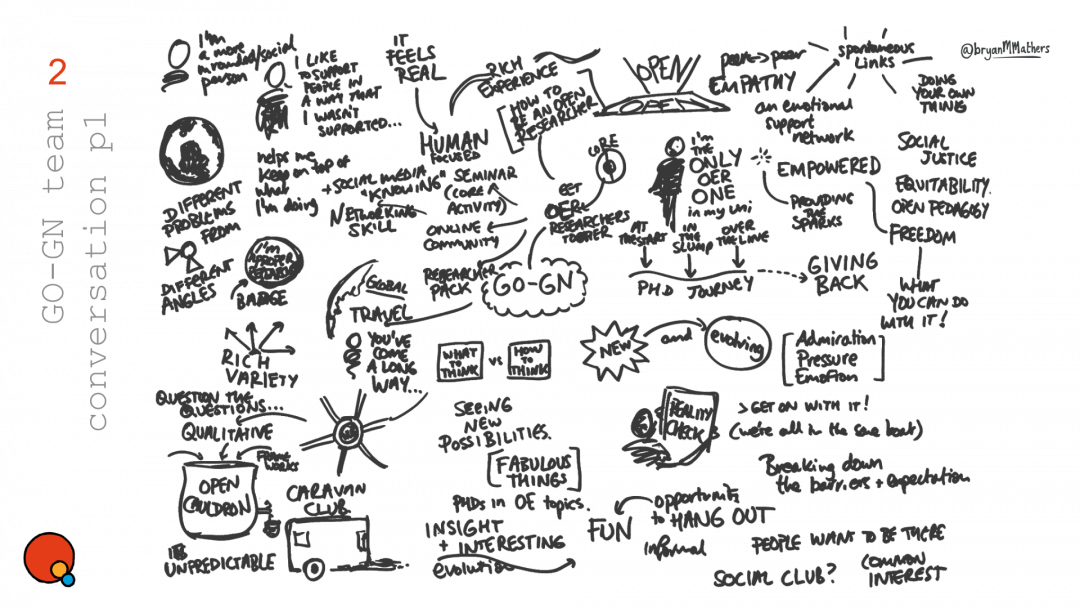 2
GO-GN team
conversation p1
@bryanMMathers
I'm
a more
rounded/social
person
I LIKE
TO SUPPORT
PEOPLE IN
A WAY THAT
I WASN'T
SUPPORTED...
IT
FEELS
REAL
HUMAN
FOCUSED
RICH
EXPERIENCE
HOW TO
BE AN OPEN
RESEARCHER
OPEN
OPEN
peer → peer
EMPATHY
an emotional
support
network
spontaneous
LINKS
DOING
YOUR OWN
THING
DIFFERENT
PROBLEMS
FROM
DIFFERENT
ANGLES
helps me
keep on top of
what
I'm doing
+SOCIAL MEDIA
"KNOWING"
NETWORKING
SKILL
SEMINAR
(CORE
ACTIVITY)
ONLINE
COMMUNITY
RESEARCHER
PACK
CORE
GET
OER
RESEARCHERS
TOGETHER
GO-GN
I'm
THE
ONLY
OER
ONE
in my uni
AT
THE START
IN
THE
SLUMP
OVER
THE LINE
PHD JOURNEY
GIVING
BACK
EMPOWERED
PROVIDING
THE
SPARKS
SOCIAL
JUSTICE
EQUITABILITY.
OPEN PEDAGOGY
FREEDOM
WHAT
YOU CAN DO
WITH IT!
I'm
A PROPER
RESEARCHER
BADGE
GLOBAL
TRAVEL
YOU'VE
COME
A LONG
WAY...
RICH
VARIETY
WHAT
TO
THINK
VS
HOW
TO
THINK
NEW
and
evolving
Admiration
Pressure
Emotion
QUESTION THE
QUESTIONS...
QUALITATIVE
FRAME
WORKS
OPEN
CAULDRON
IT'S
UNPREDICTABLE
CARAVAN
CLUB
SEEING
NEW
POSSIBILITIES.
FABULOUS
THINGS
PHDs IN OE topics.
INSIGHT
+ INTERESTING
evolution
REALITY
CHECK
> GET ON WITH IT!
(we're all in the same boat)
Breaking down
the barriers + expectation
FUN
opportunity
to HANG OUT
informal
PEOPLE WANT TO BE THERE
SOCIAL CLUB?
COMMON
INTEREST